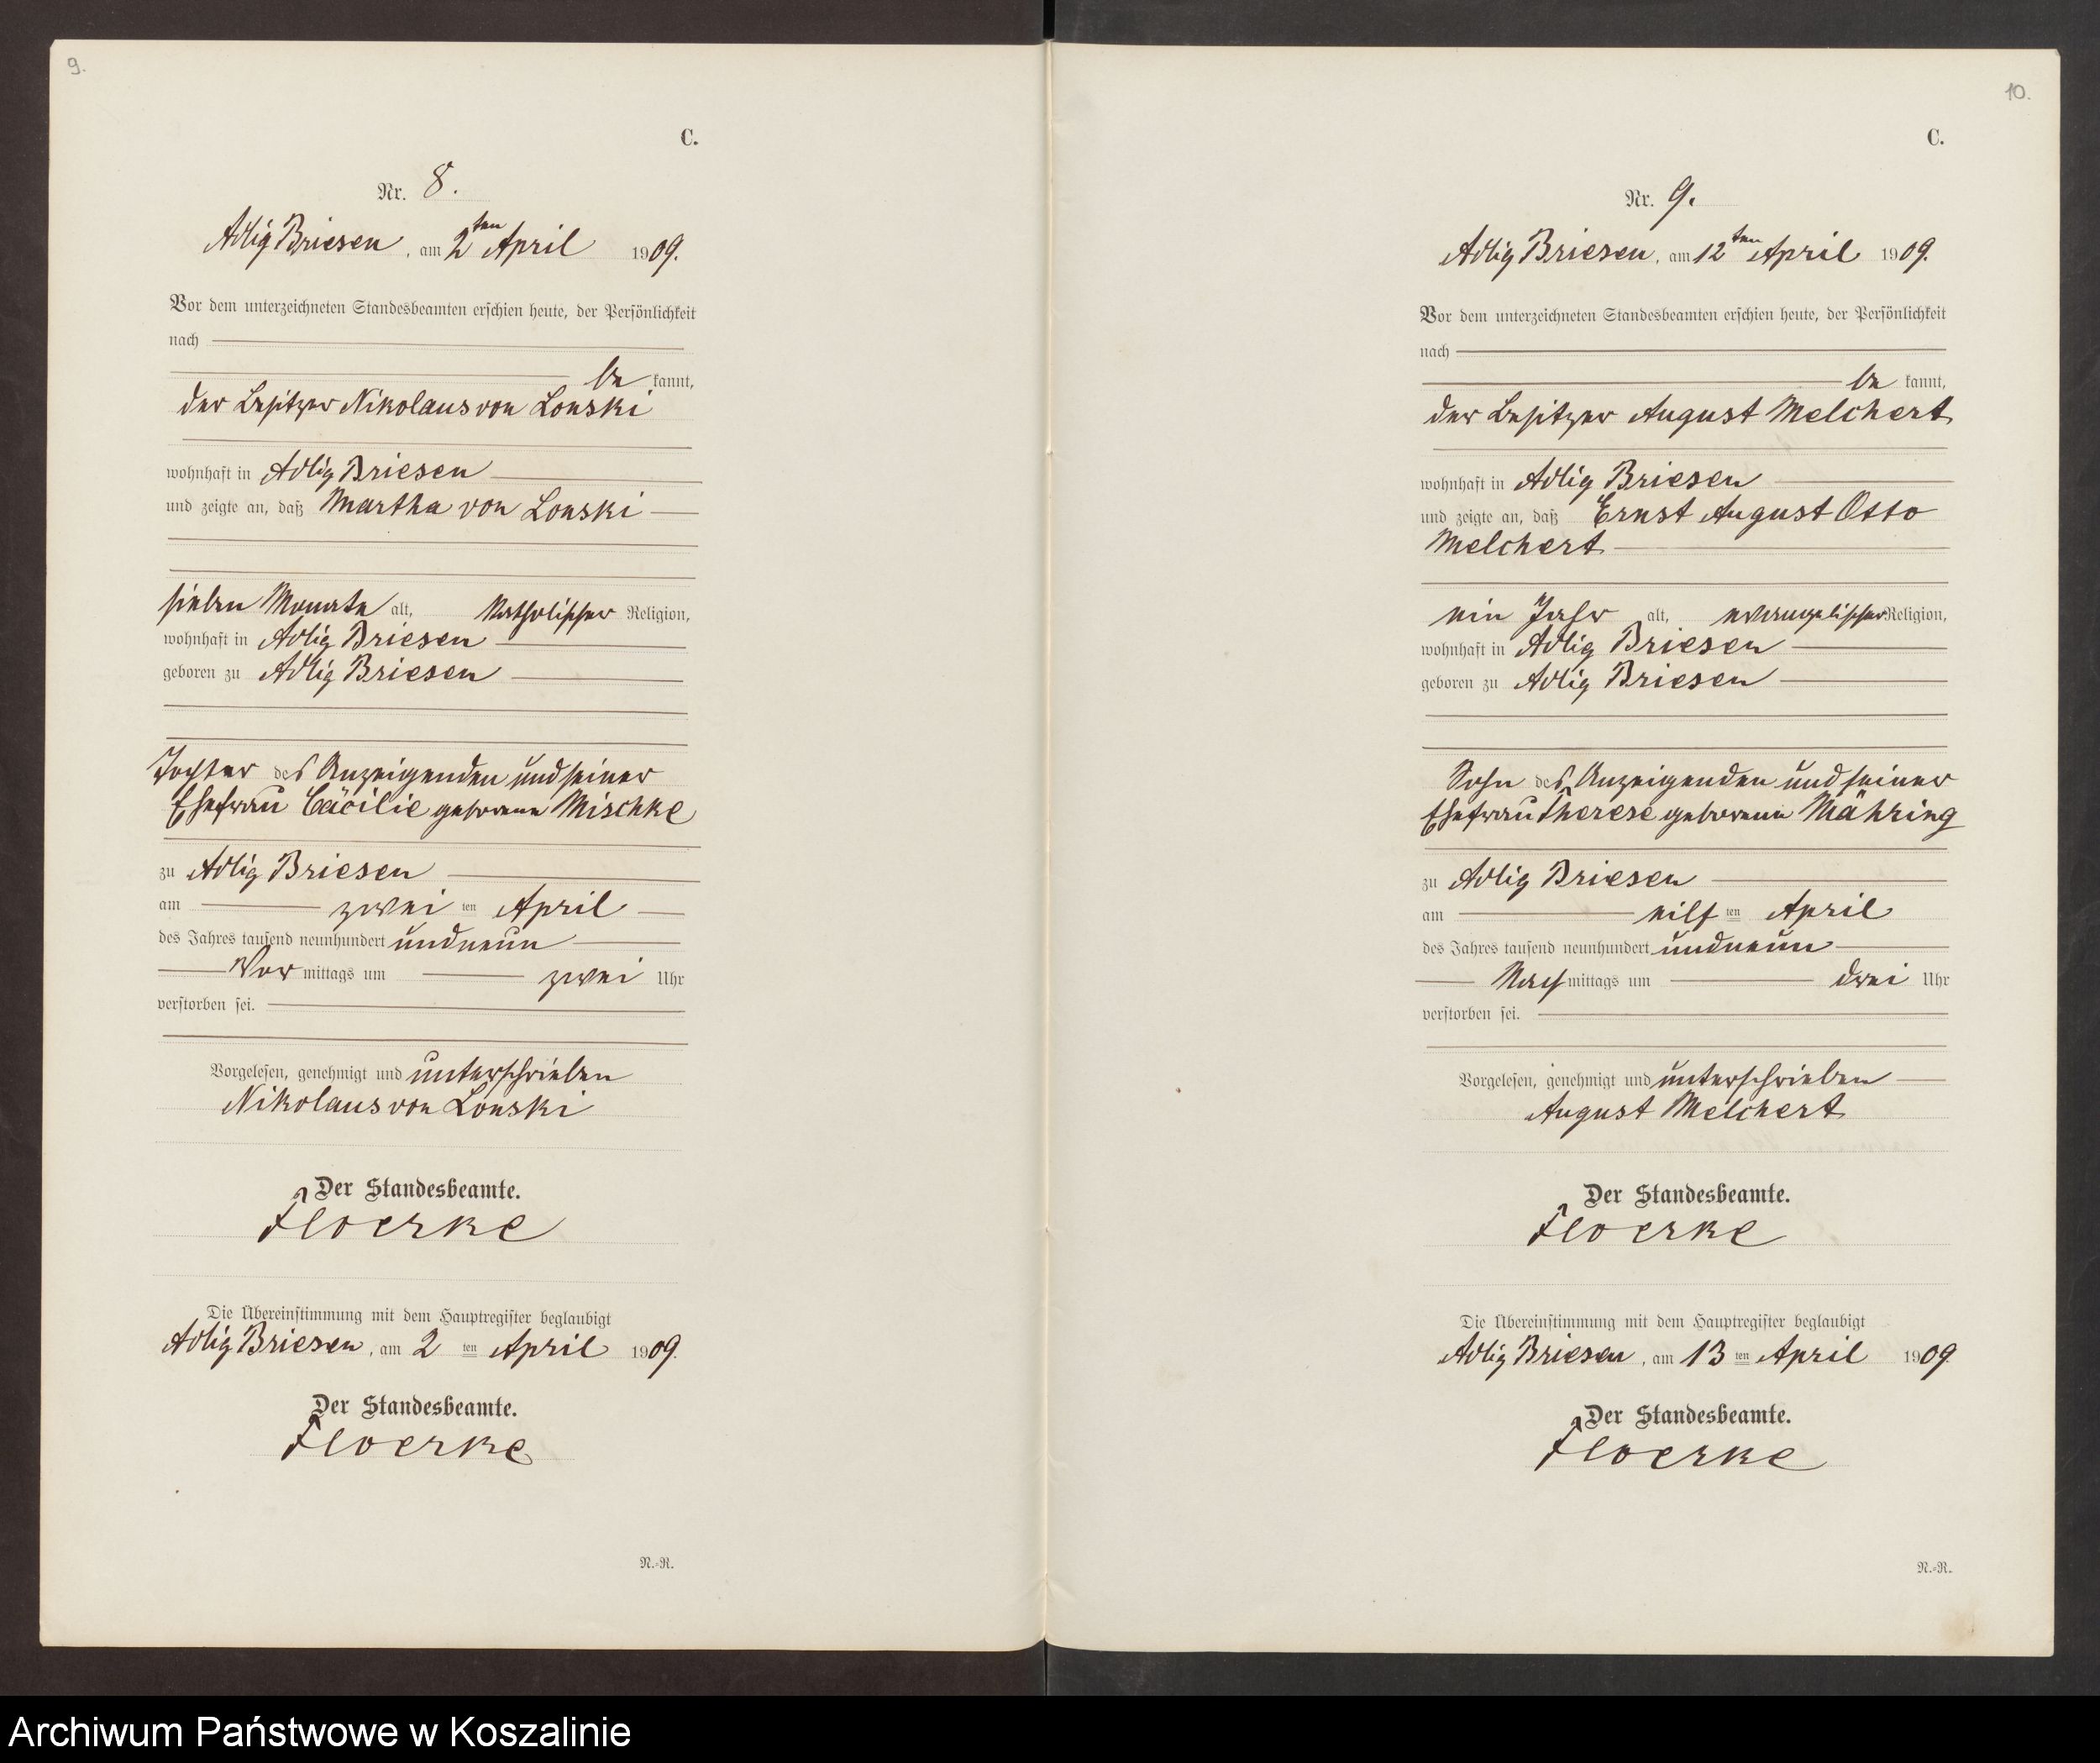 9.
C.
Nr. 8.
Adlig Briesen, am 2ten April 1909.
Vor dem unterzeichneten Standesbeamten erschien heute, der Persönlichkeit
nach
be kannt,
der Besitzer Nikolaus von Lonski
wohnhaft in Adlig Briesen
und zeigte an, daß Martha von Lonski
sieben Monate alt, katholischer Religion,
wohnhaft in Adlig Briesen
geboren zu Adlig Briesen
Tochter des Anzeigenden und seiner
Ehefrau Cäcilie geborene Mischke
zu Adlig Briesen
am zwei ten April
des Jahres tausend neunhundert und neun
Vor mittags um zwei Uhr
verstorben sei.
Vorgelesen, genehmigt und unterschrieben
Nikolaus von Lonski
Der Standesbeamte.
Floerke
Die Übereinstimmung mit dem Hauptregister beglaubigt
Adlig Briesen, am 2 ten April 1909.
Der Standesbeamte.
Floerke
N.-R.
10.
C.
Nr. 9.
Adlig Briesen, am 12ten April 1909.
Vor dem unterzeichneten Standesbeamten erschien heute, der Persönlichkeit
nach
be kannt,
der Besitzer August Melchert
wohnhaft in Adlig Briesen
und zeigte an, daß Ernst August Otto
Melchert
ein Jahr alt, evangelischer Religion,
wohnhaft in Adlig Briesen
geboren zu Adlig Briesen
Sohn des Anzeigenden und seiner
Ehefrau Therese geborene Mähring
zu Adlig Briesen
am eilf ten April
des Jahres tausend neunhundert und neun
Nach mittags um drei Uhr
verstorben sei.
Vorgelesen, genehmigt und unterschrieben
August Melchert
Der Standesbeamte.
Floerke
Die Übereinstimmung mit dem Hauptregister beglaubigt
Adlig Briesen, am 13 ten April 1909
Der Standesbeamte.
Floerke
N.-R.
Archiwum Państwowe w Koszalinie